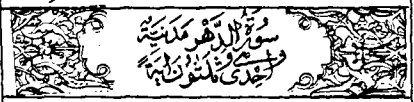 سُورَةُ الدَّهْرِ مَدَنِيَّةٌ
وَهِيَ اِحْدٰى وَّثَلٰثُوْنَ اٰيَةً